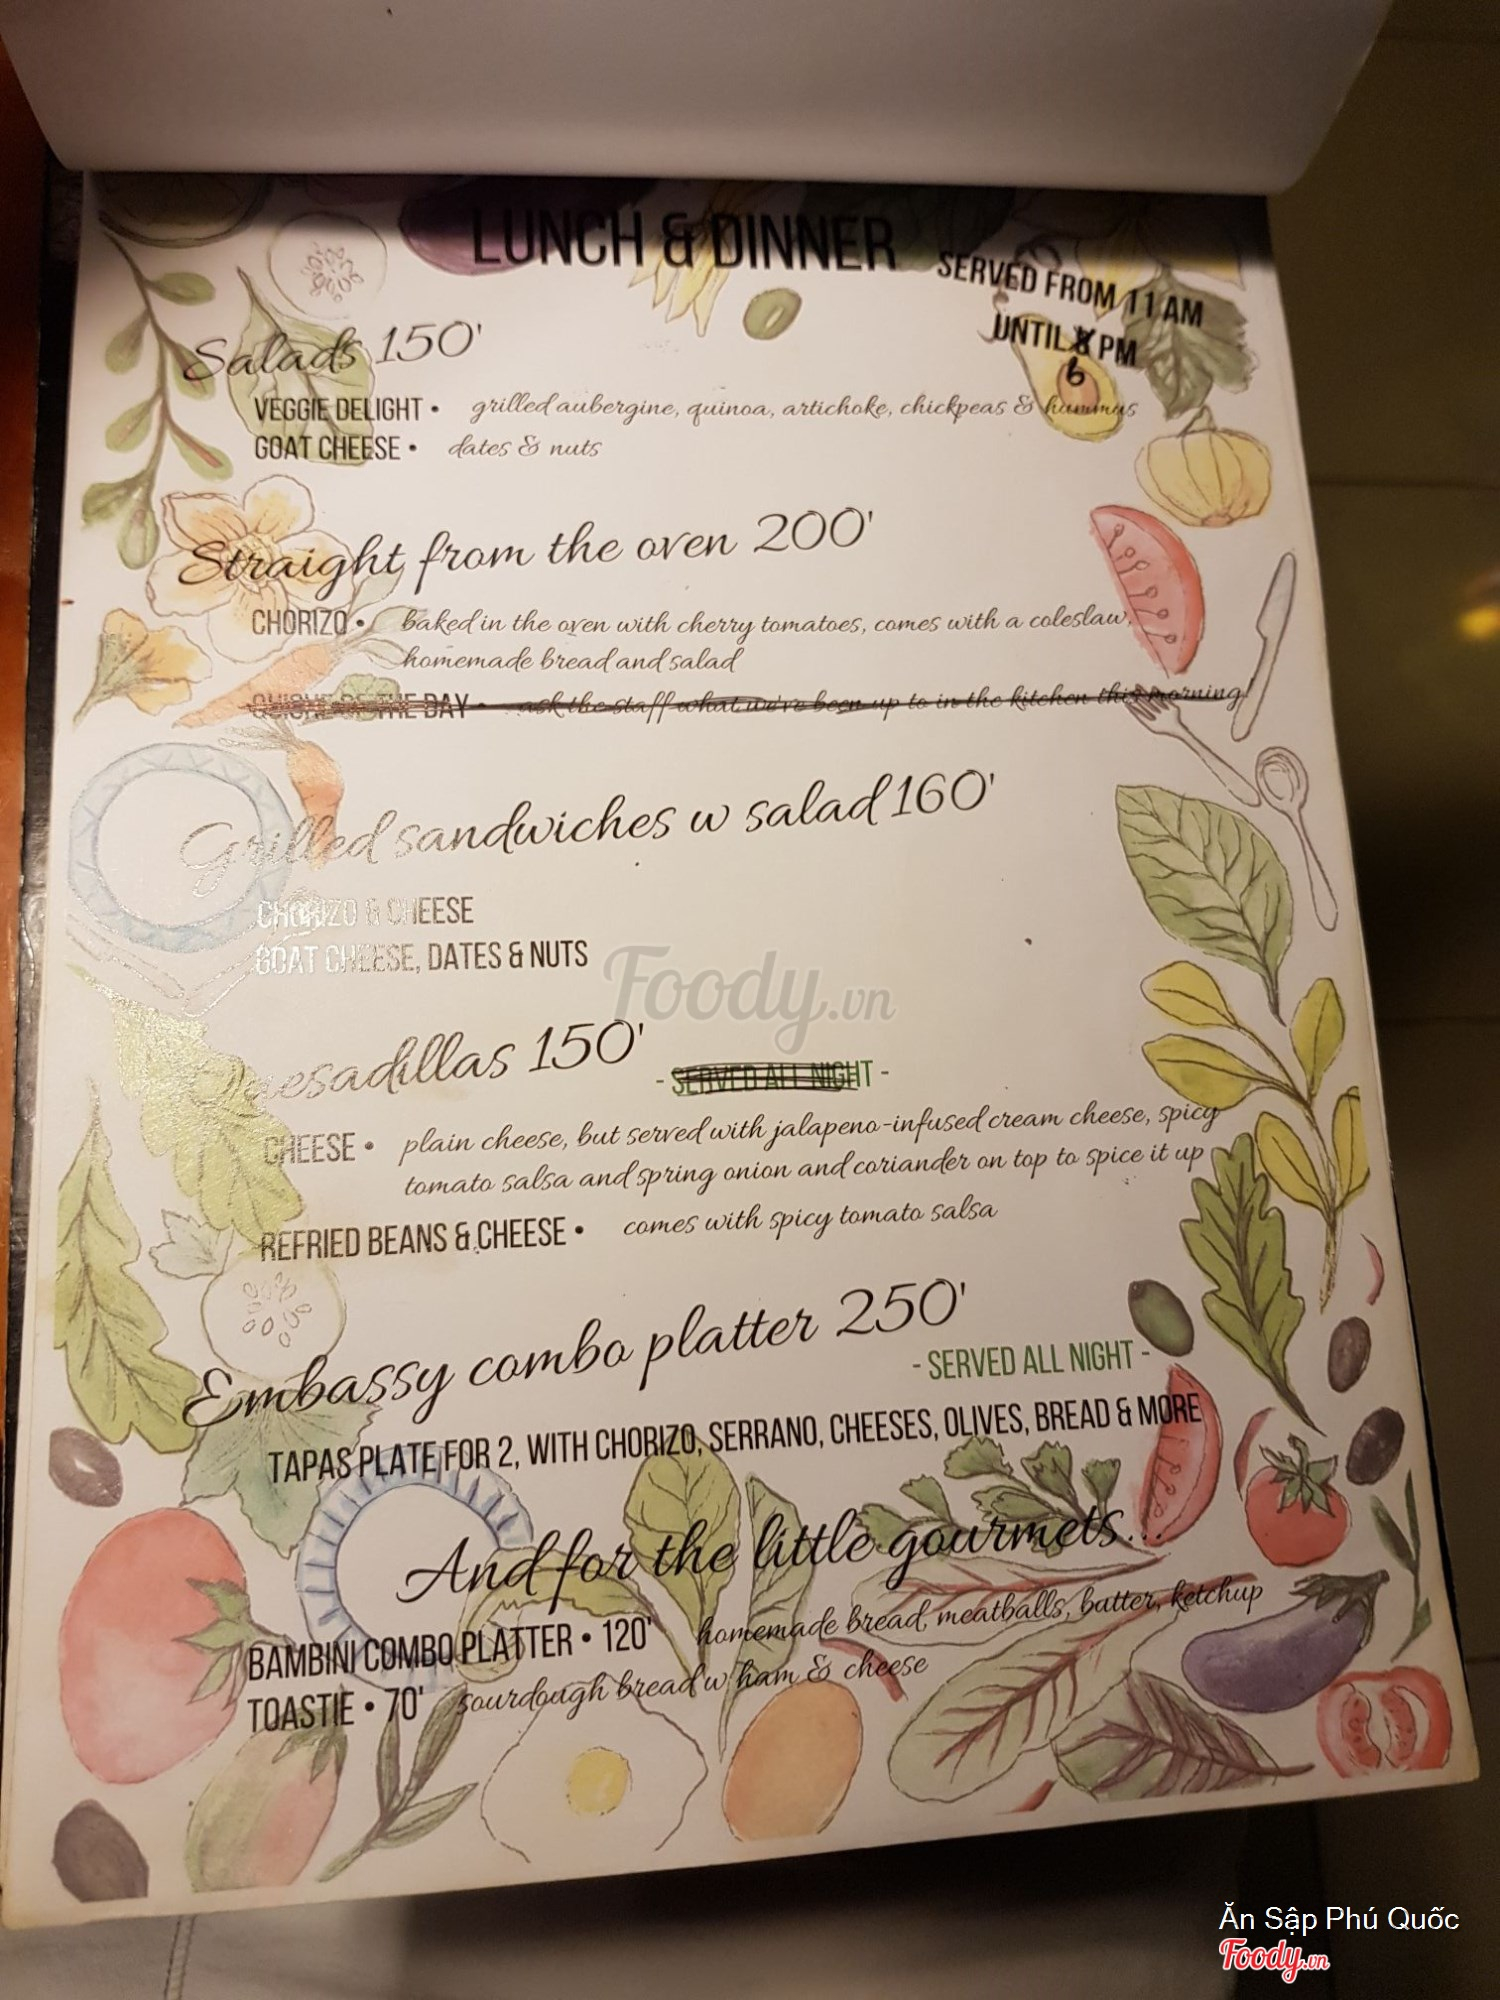 LUNCH & DINNER
SERVED FROM 11 AM
UNTIL 8 PM
6
Salads 150'
VEGGIE DELIGHT • grilled aubergine, quinoa, artichoke, chickpeas & hummus
GOAT CHEESE • dates & nuts
Straight from the oven 200'
CHORIZO • baked in the oven with cherry tomatoes, comes with a coleslaw,
homemade bread and salad
QUICHE OF THE DAY • ask the staff what we've been up to in the kitchen this morning!
Grilled sandwiches w salad 160'
CHORIZO & CHEESE
GOAT CHEESE, DATES & NUTS
Foody.vn
Quesadillas 150'
- SERVED ALL NIGHT -
CHEESE • plain cheese, but served with jalapeno-infused cream cheese, spicy
tomato salsa and spring onion and coriander on top to spice it up
REFRIED BEANS & CHEESE • comes with spicy tomato salsa
Embassy combo platter 250'
- SERVED ALL NIGHT -
TAPAS PLATE FOR 2, WITH CHORIZO, SERRANO, CHEESES, OLIVES, BREAD & MORE
And for the little gourmets...
BAMBINI COMBO PLATTER • 120' homemade bread, meatballs, butter, ketchup
TOASTIE • 70' sourdough bread w ham & cheese
Ăn Sập Phú Quốc
Foody.vn